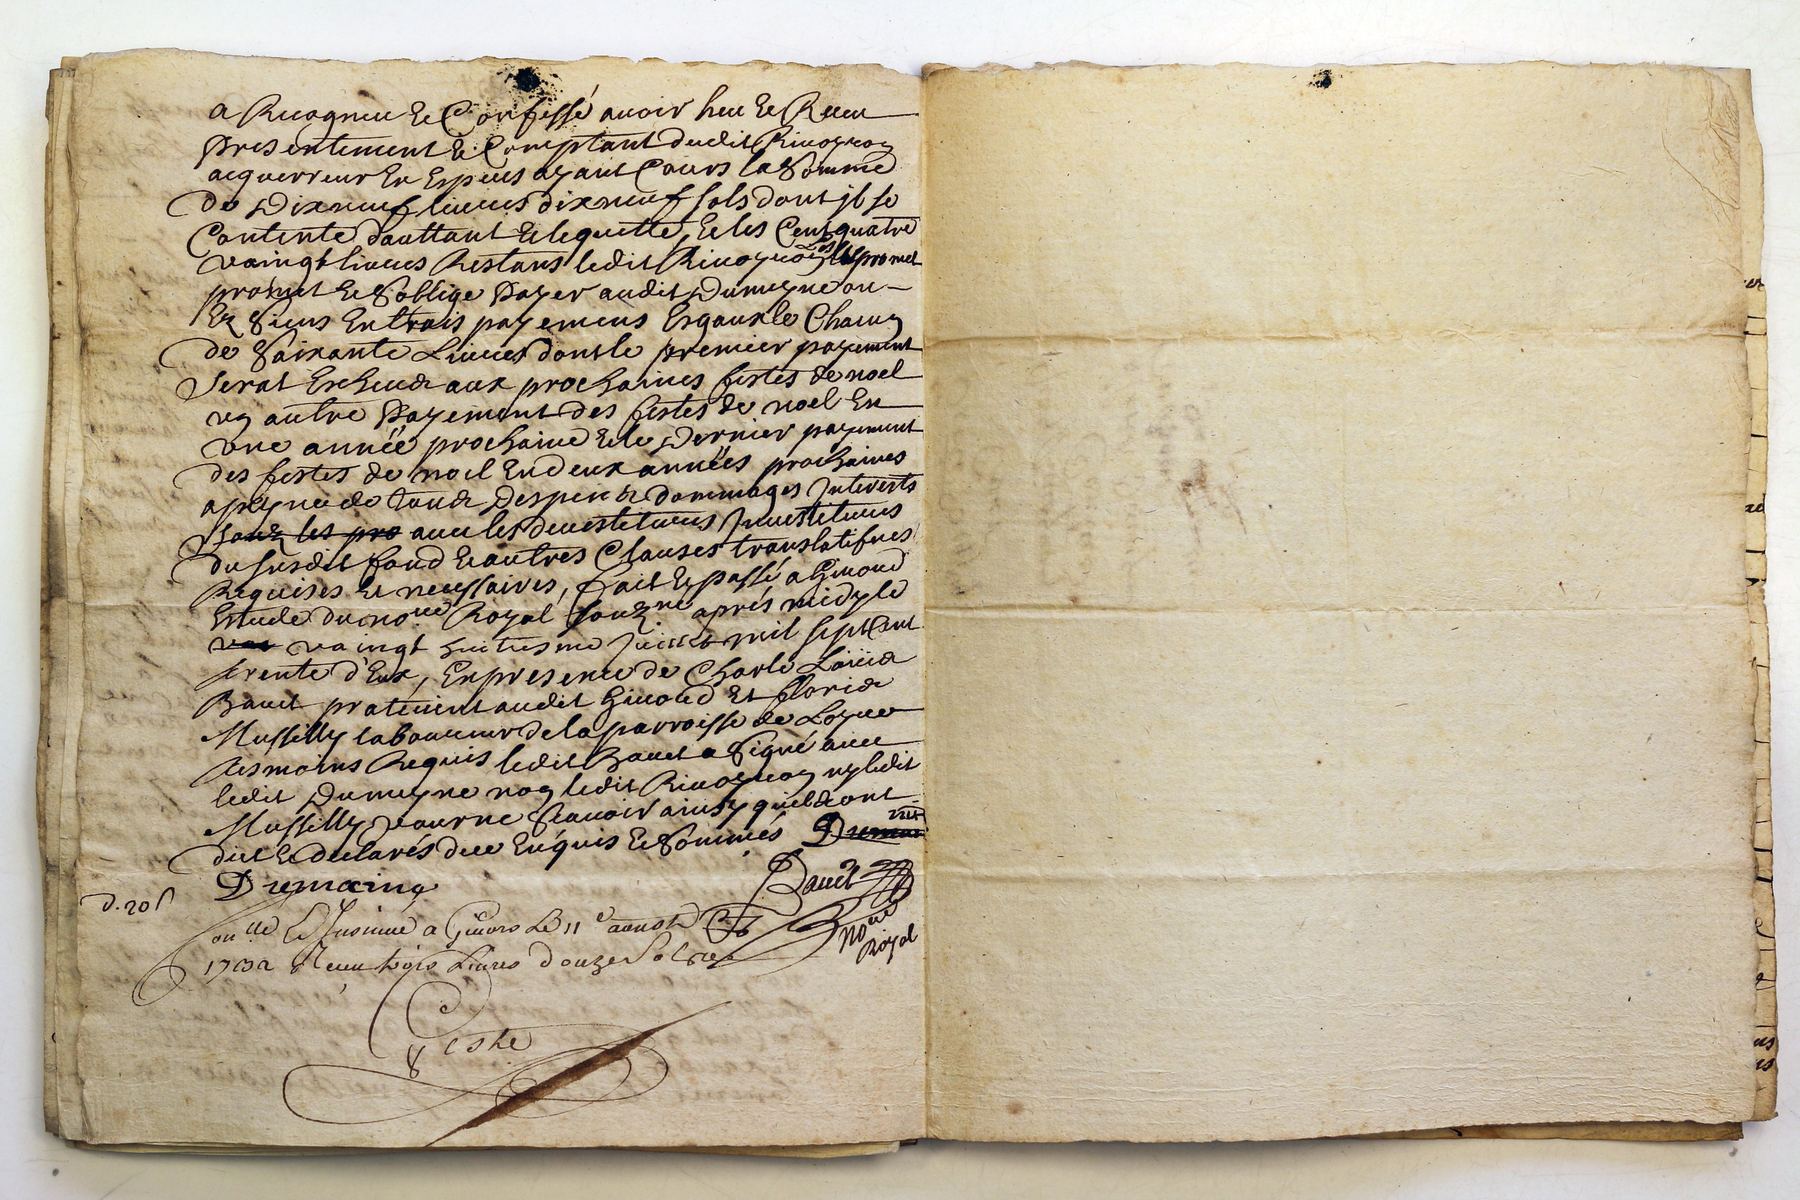 a Recogneu & Confessé avoir heu & Receu
presentement & Comptant dudit Rivoyron
acquerreur En Especes ayant Cours la Somme
de Dixneuf livres dixneuf sols dont il se
Contente d'auttant & le quitte, & les Cent quatre
vaingt livres Restans ledit Rivoyron promet
promet & S'oblige payer audit Dumeyne ou
Es Siens En trois payemens Esgaux le Chacun
de Soixante Livres dont le premier payement
Serat Escheuda aux prochaines festes de noel
un autre payement des festes de noel En
une année prochaine & le Dernier payement
des festes de noel En deux années prochaines
a peyne de tous Despens dommages Interests
Souz les pro avec les devestitures Investitures
du susdit fond & autres Clauses translatifves
Requises & necessaires, fait & passé a Givord
Estude du no.re Royal souz.né après midy le
vaingt huitiesme Juillet mil sept Cent
trente d'Eux, En presence de Charle Loüis
Bavet praticient audit Givord Et florie
Mussilly laboureur de la parroisse de Loyre
tesmoins Requis ledit Bavet a Signé avec
ledit Dumeyne non ledit Rivoyron ny ledit
Mussilly pour ne Scavoir ainsy quils ont
dit & declarés de ce Enquis & Sommés
Dumaine
Bavet
d. 20 s
Con.llé & Insinué a Givors Le 11e aoust
no.re
Royal
1732 Receu trois Livres douze Sols
Teste